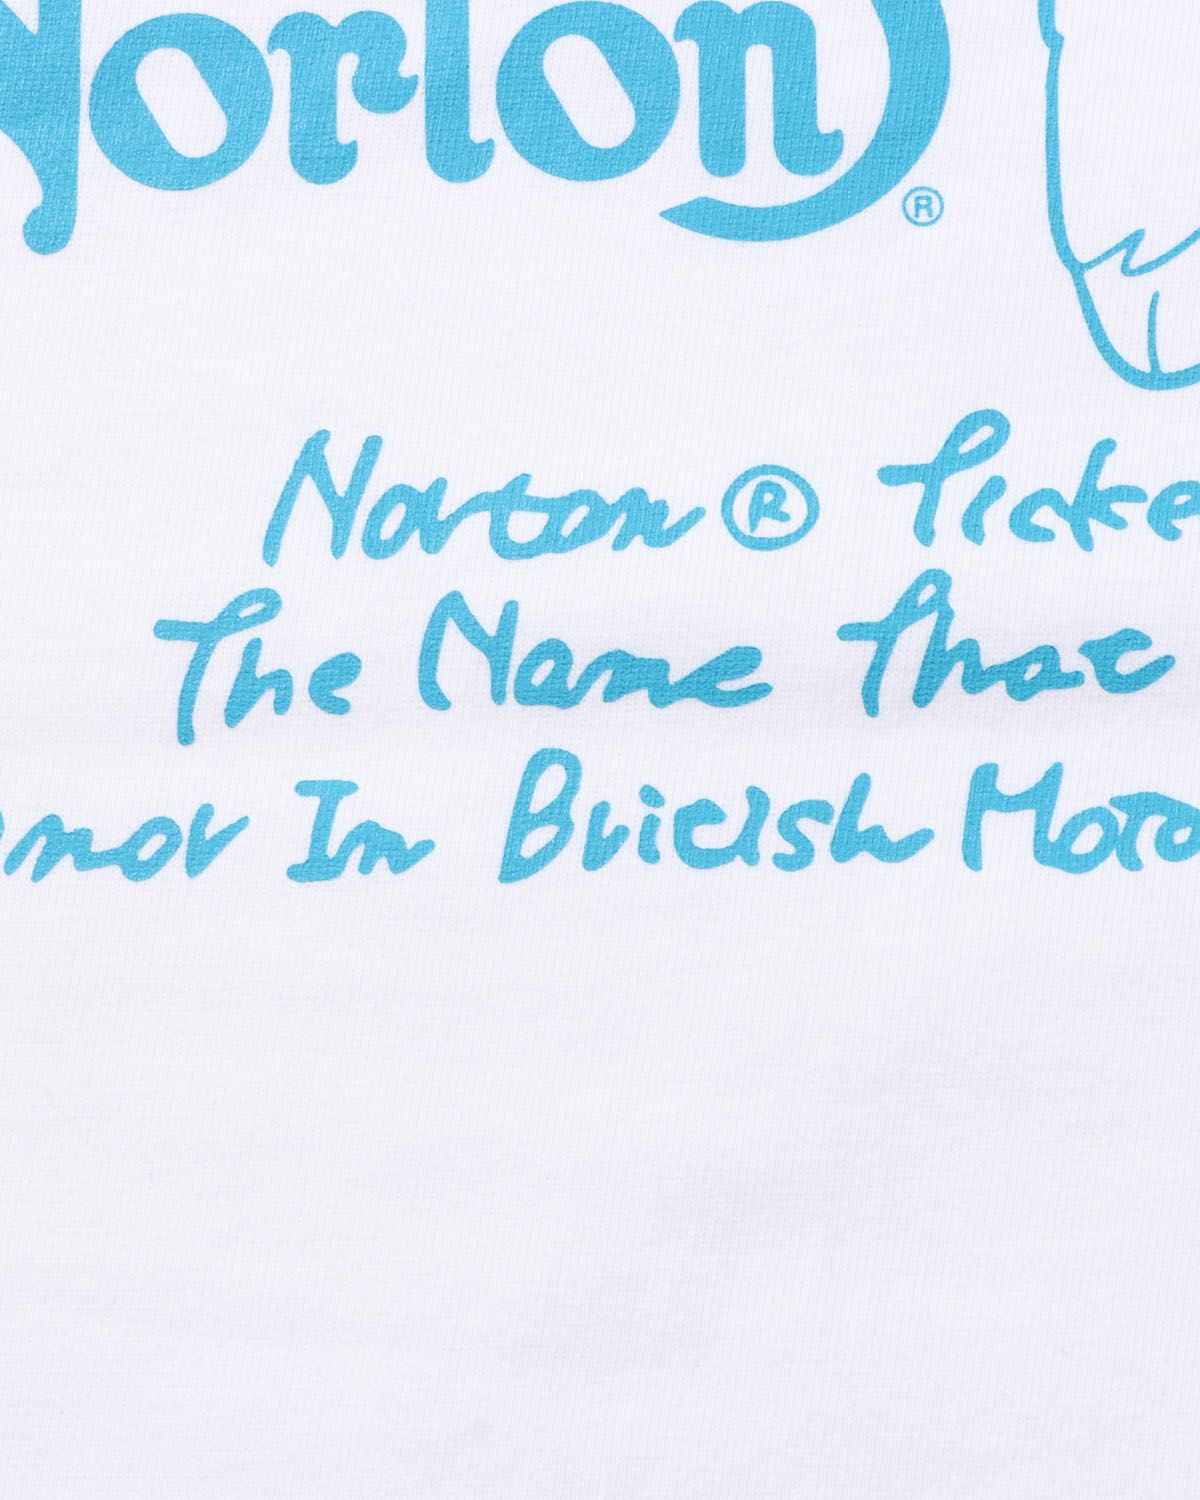 Norton®
Norton® Ticke
The Name That
nor In British Moto